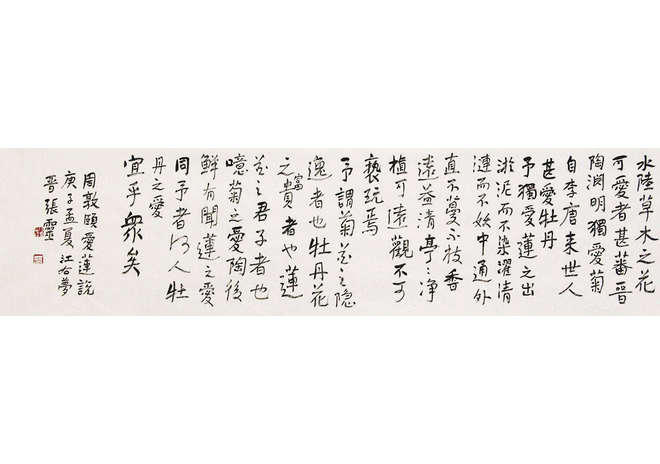 水陸草木之花
可愛者甚蕃晋
陶渊明獨愛菊
自李唐来世人
甚愛牡丹
予獨愛蓮之出
淤泥而不染濯清
漣而不妖中通外
直不蔓不枝香
遠益清亭〻净
植可遠觀不可
褻玩焉
予謂菊花之隐
逸者也牡丹花
之富貴者也蓮
花之君子者也
噫菊之愛陶後
鮮有聞蓮之愛
同予者何人牡
丹之愛
宜乎衆矣
周敦頤愛蓮説
庚子孟夏江右夢
晋張靈